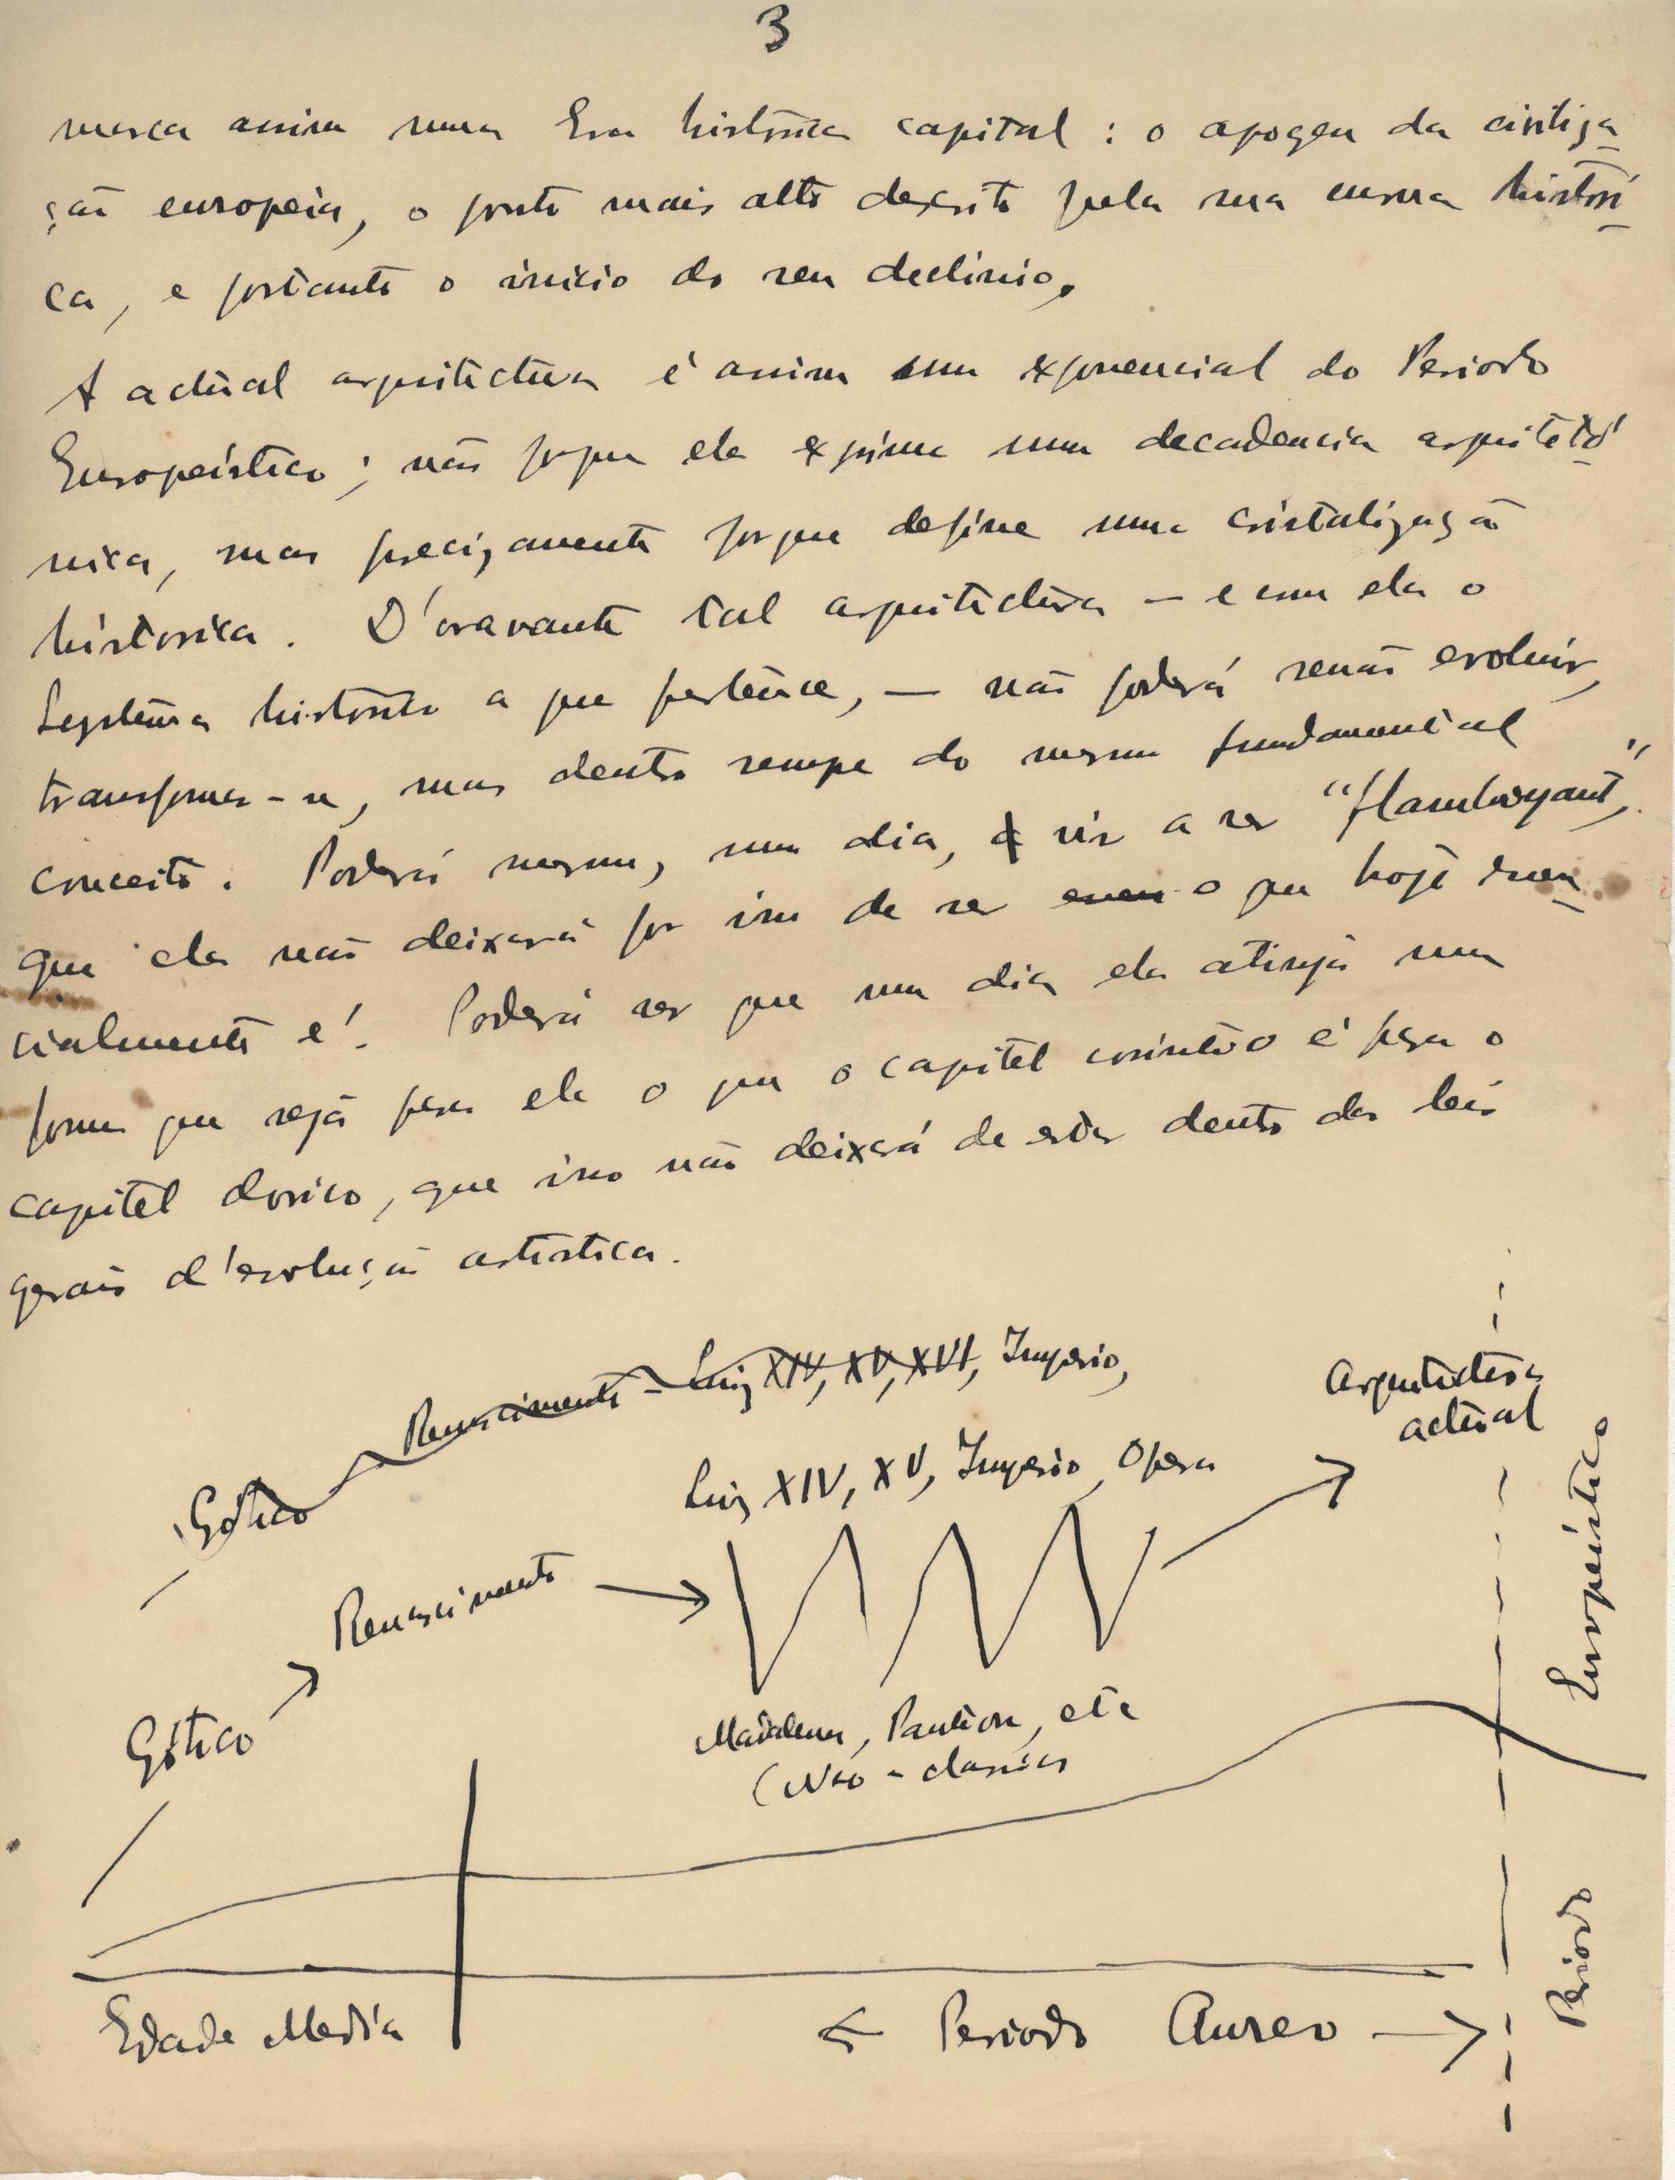 3
marca assim uma Era histórica capital : o apogeu da civiliza-
ção europeia, o ponto mais alto descrito pela sua curva históri-
ca, e portanto o inicio do seu declinio.
A actual arquitectura é assim um exponencial do Periodo
Europeístico ; não porque ela exprime uma decadencia arquitetó-
nica, mas precizamente porque define uma cristalização
historica. D'oravante tal arquitectura — e com ela o
Systema historico a que pertence, — não poderá senão evoluir,
transformar-se, mas dentro sempre do mesmo fundamental
conceito. Poderá mesmo, um dia, vir a ser "flamboyant",
que ela não deixará por isso de ser o que hoje essen-
cialmente é. Poderá ser que um dia ela atinja uma
forma que seja para ela o que o capitel corintio é para o
capitel dorico, que isso não deixará de estar dentro das leis
gerais d'evolução artistica.
Gótico Renascimento - Luiz XIV, XV, XVI, Imperio,
Arquitectura
actual
Luiz XIV, XV, Imperio, Opera
Renascimento
Gótico
Madalena, Panteon, etc
(Neo-classicos
Europeístico
Periodo
Edade Media
Periodo Aureo